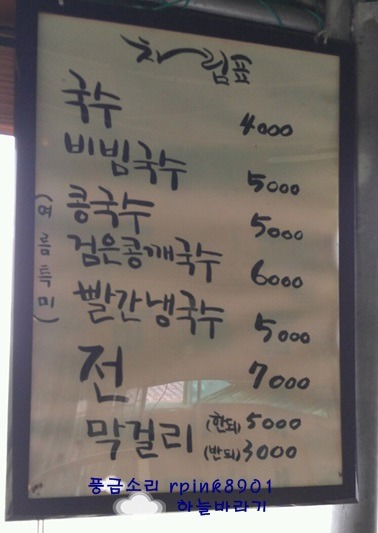 차림표
국수 4000
비빔국수 5000
콩국수 5000
검은콩깨국수 6000
빨간냉국수 5000
(여름특미)
전 7000
막걸리 (한되) 5000
(반되) 3000
풍금소리 rpink8901
하늘바라기